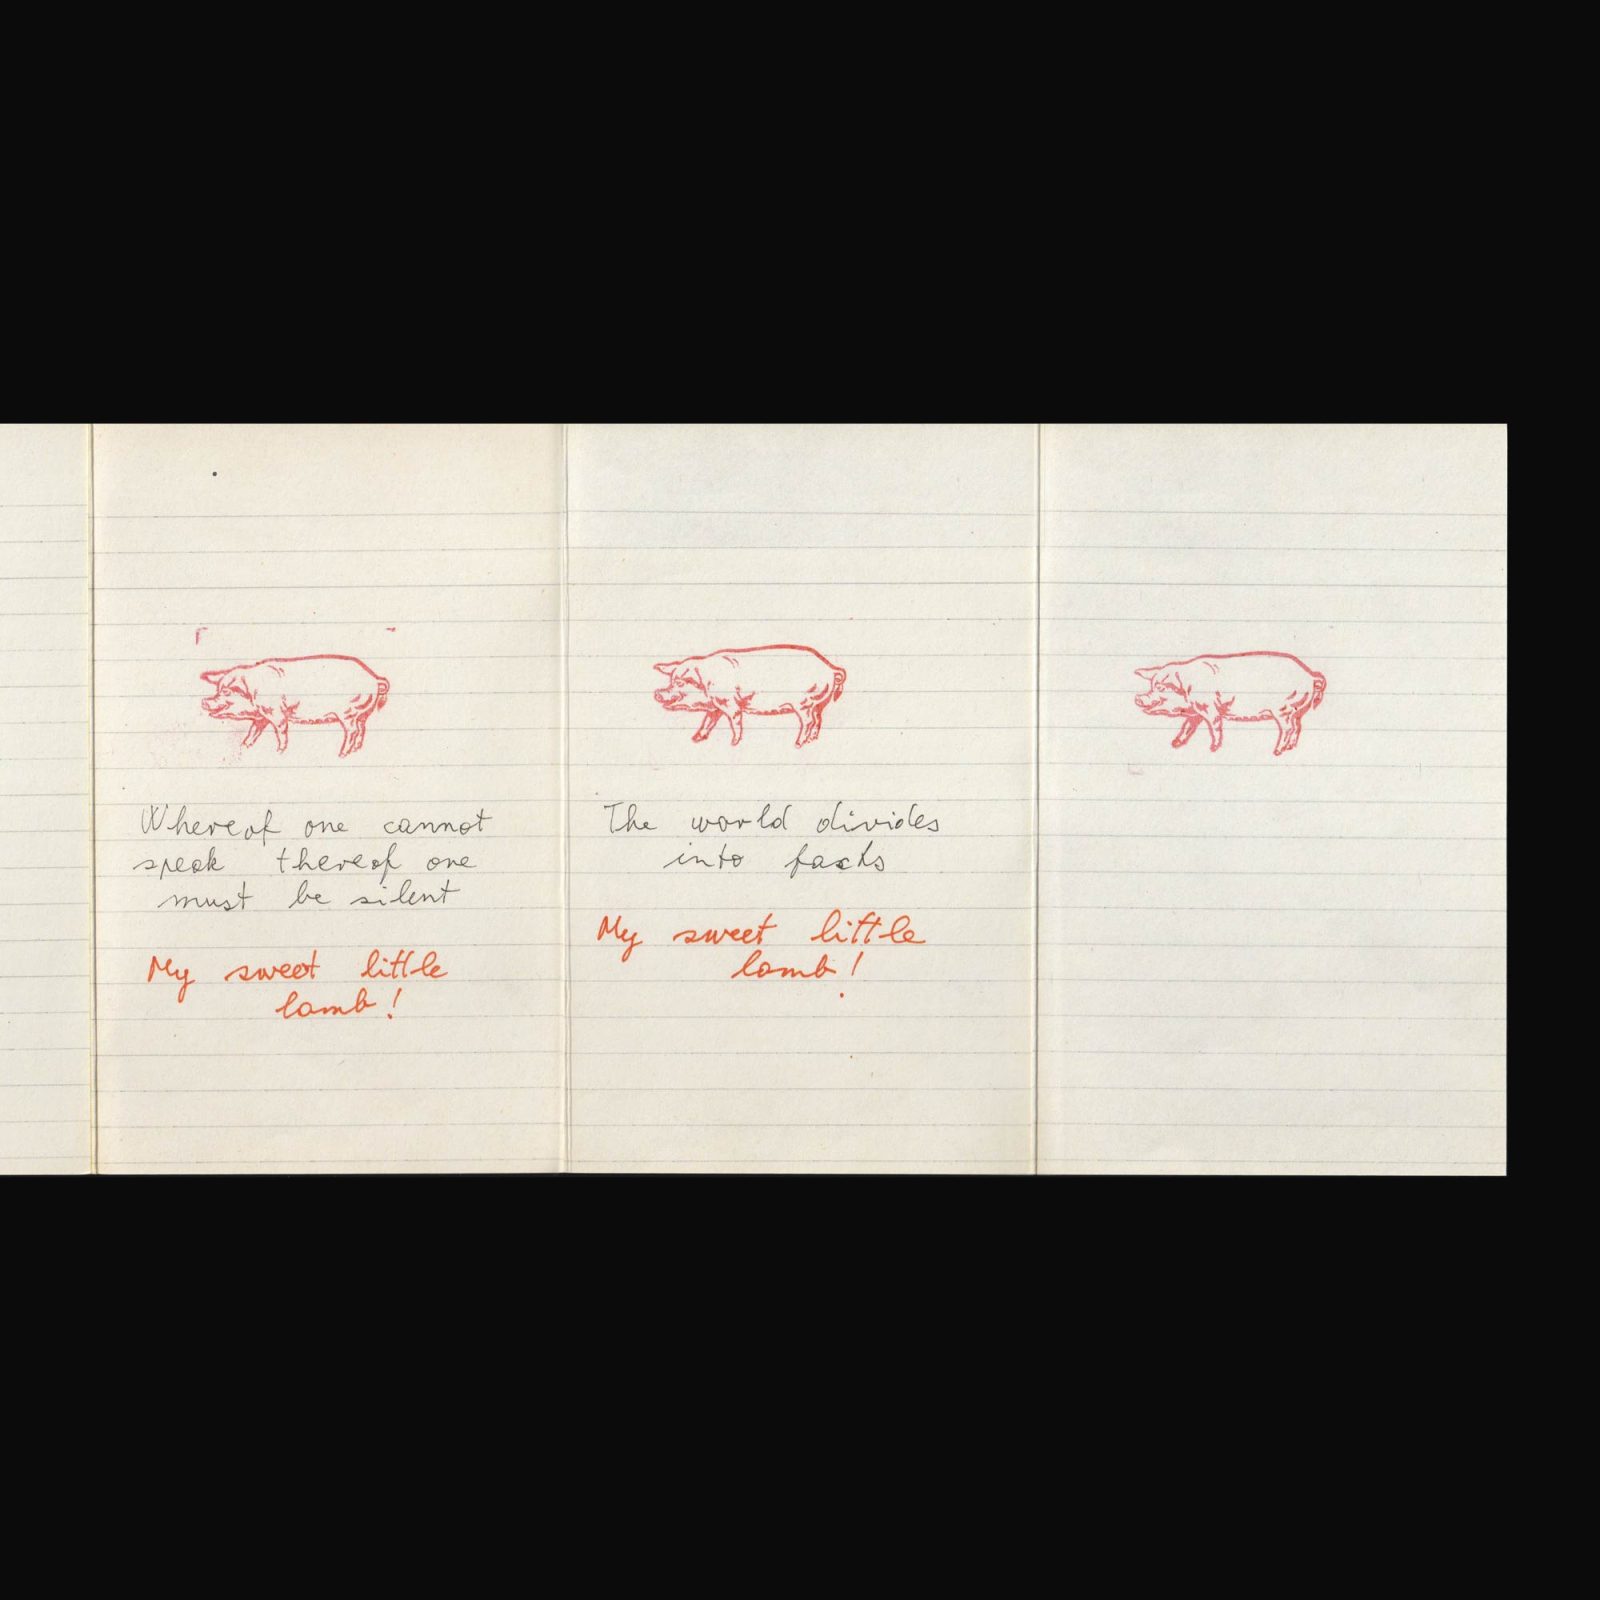 Whereof one cannot
speak thereof one
must be silent
My sweet little
lamb!
The world divides
into facts
My sweet little
lamb!